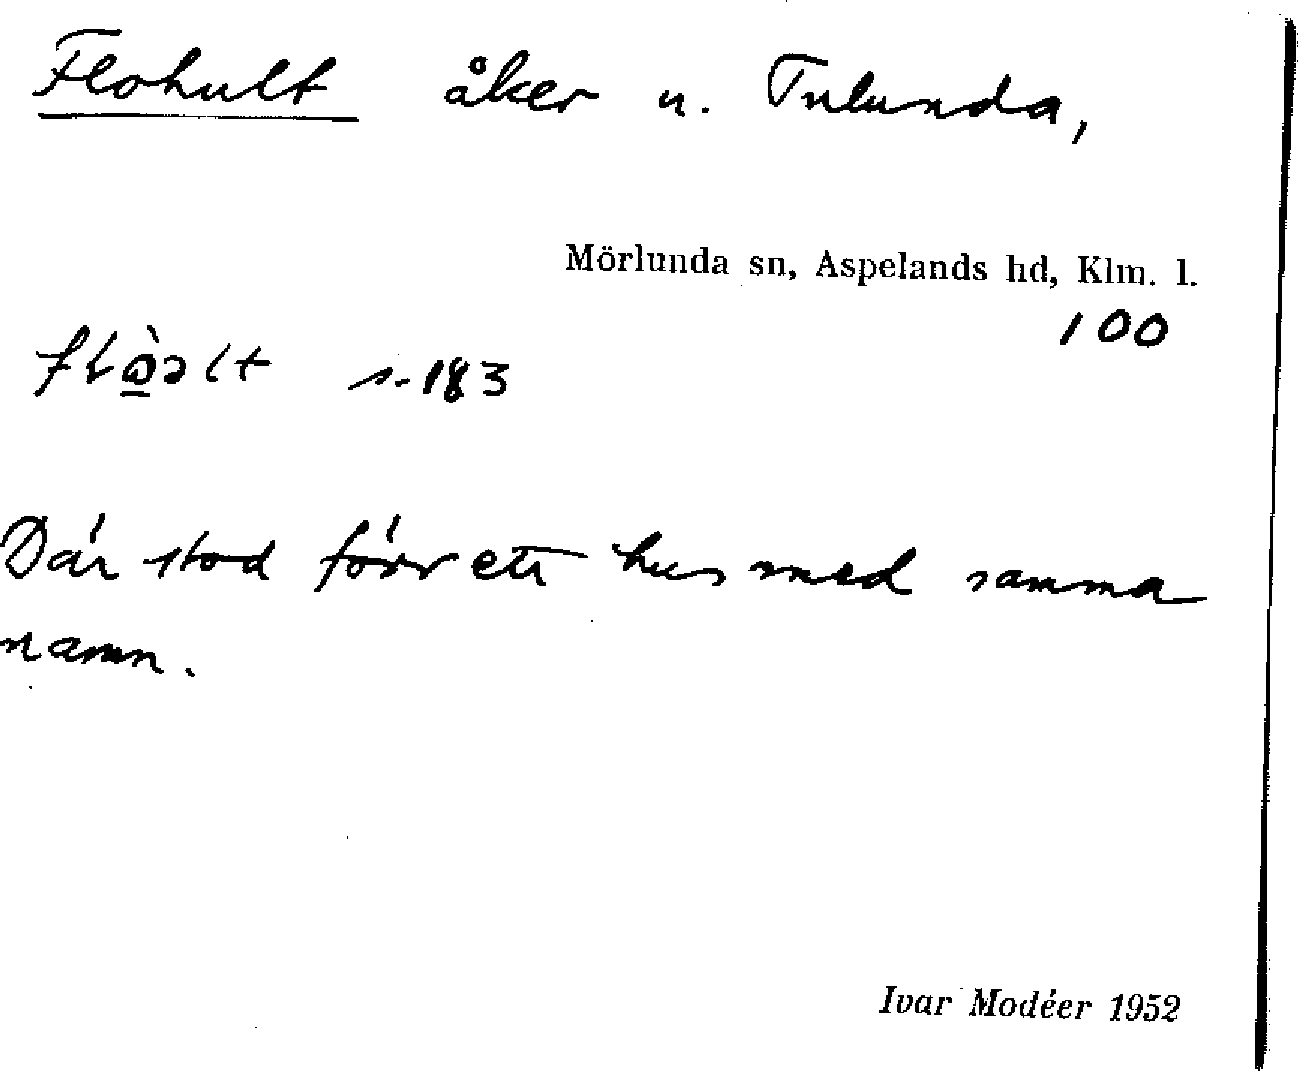 Flohult åker u. Tulunda,
Mörlunda sn, Aspelands hd, Klm. l.
100
s. 183
Där stod förr ett hus med samma
namn.
Ivar Modéer 1952